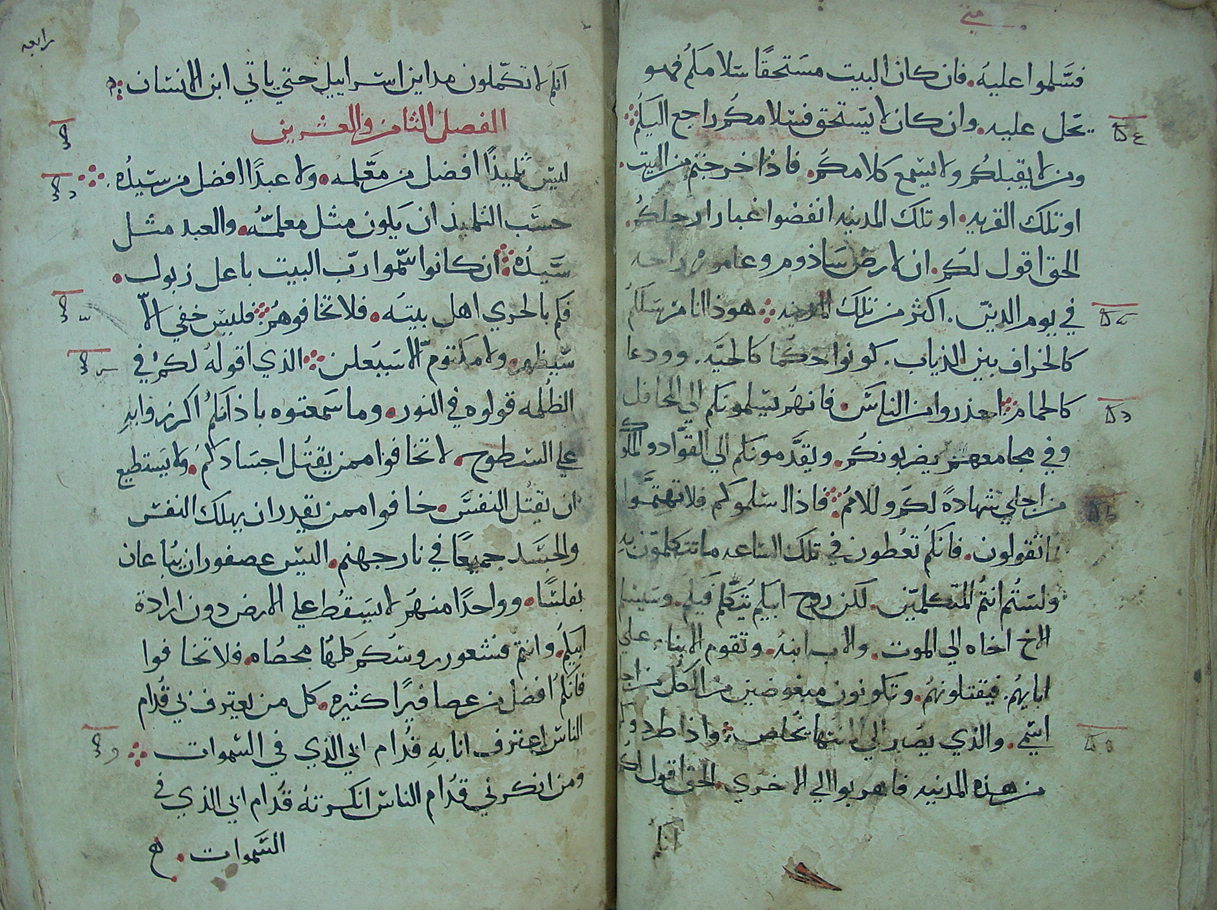 متى
فسلموا عليه. فان كان البيت مستحقًا سلامكم فهو
يحل عليه. وان كان لا يستحق فسلامكم راجع اليكم
ومن لا يقبلكم ولا يسمع كلامكم. فاذا خرجتم من البيت
او تلك القريه. او تلك المدينه انفضوا غبار ارجلكم.
الحق اقول لكم. ان لارض ساذوم وعاموره راحه
في يوم الدين. اكثر من تلك المدينه هوذا انا مرسلكم
كالخراف بين الذياب. كونوا حكما كالحيه. وودعا
كالحمام احذروا من الناس. فانهم يسلمونكم الي المحافل
وفي مجامعهم يضربونكم. ويقدمونكم الي القواد والملوك
من اجلي شهادةً لكم وللامم فاذا اسلموكم فلا تهتموا
ما تقولون. فانكم تعطون في تلك الساعه ما تتكلمون به
ولستم انتم المتكلمين. لكن روح ابيكم يتكلم فيكم. وسيسلم
الاخ اخاه الي الموت. والاب ابنه. وتقوم الابناء علي
ابايهم. فيقتلونهم. وتكونون مبغوضين من الكل من اجل
اسمي. والذي يصبر الي المنتها يخلص واذا طردوكم
من هذه المدينه فاهربوا الي الاخري. الحق اقول لكم
انكم
رابعه
انكم لا تكملون مداين اسراييل حتي ياتي ابن الانسان
الفصل الثامن والعشرين
ليس تلميذًا افضل من معلمه. ولا عبدًا افضل من سيده.
حسب التلميذ ان يكون مثل معلمه. والعبد مثل
سيده ان كانوا سموا رب البيت باعل زبول.
فكم بالحري اهل بيته. فلا تخافوهم فليس خفي الا
سيظهر. ولا مكتوم الا سيعلن الذي اقوله لكم في
الظلمه قولوه في النور. وما سمعتوه باذانكم اكرزوا به
علي السطوح. لا تخافوا ممن يقتل اجسادكم. ولا يستطيع
ان يقتل النفس. خافوا ممن يقدر ان يهلك النفس
والجسد جميعًا في نار جهنم. اليس عصفوران يباعان
بفلس. وواحدًا منهم لا يسقط علي الارض دون ارادة
ابيكم. وانتم فشعور روسكم كلها محصاه. فلا تخافوا
فانكم افضل من عصافيرًا كثيره. كل من يعترف بي قدام
الناس اعترف انا به قدام ابي الذي في السموات
ومن انكرني قدام الناس انكرته قدام ابي الذي في
السموات.